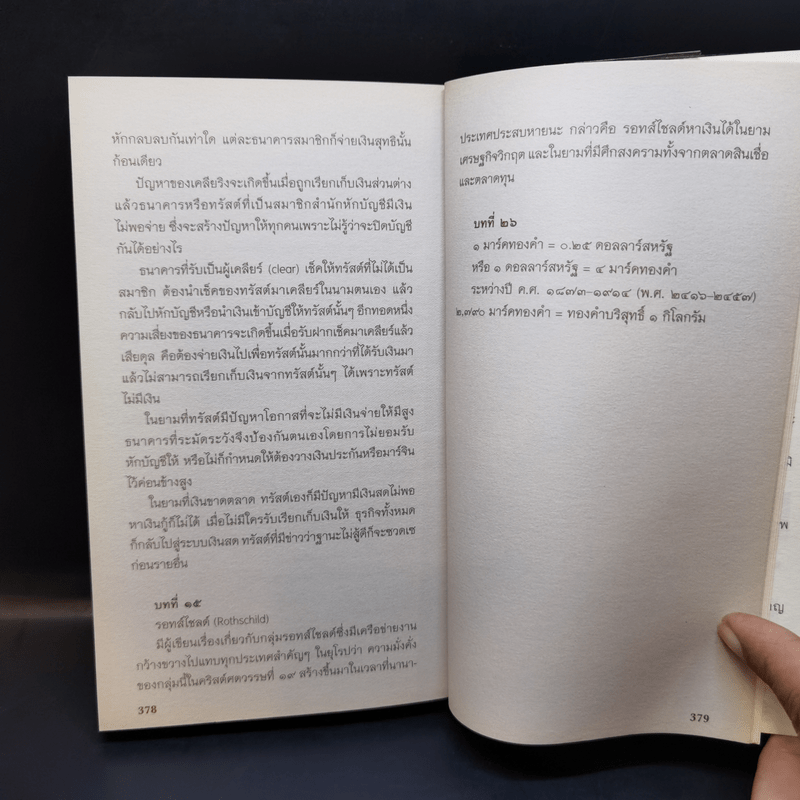 หักกลบลบกันเท่าใด แต่ละธนาคารสมาชิกก็จ่ายเงินสุทธินั้น
ก้อนเดียว
ปัญหาของเคลียริงจะเกิดขึ้นเมื่อถูกเรียกเก็บเงินส่วนต่าง
แล้วธนาคารหรือทรัสต์ที่เป็นสมาชิกสำนักหักบัญชีมีเงิน
ไม่พอจ่าย ซึ่งจะสร้างปัญหาให้ทุกคนเพราะไม่รู้ว่าจะปิดบัญชี
กันได้อย่างไร
ธนาคารที่รับเป็นผู้เคลียร์ (clear) เช็คให้ทรัสต์ที่ไม่ได้เป็น
สมาชิก ต้องนำเช็คของทรัสต์มาเคลียร์ในนามตนเอง แล้ว
กลับไปหักบัญชีหรือนำเงินเข้าบัญชีให้ทรัสต์นั้นๆ อีกทอดหนึ่ง
ความเสี่ยงของธนาคารจะเกิดขึ้นเมื่อรับฝากเช็คมาเคลียร์แล้ว
เสียดุล คือต้องจ่ายเงินไปเพื่อทรัสต์นั้นมากกว่าที่ได้รับเงินมา
แล้วไม่สามารถเรียกเก็บเงินจากทรัสต์นั้นๆ ได้เพราะทรัสต์
ไม่มีเงิน
ในยามที่ทรัสต์มีปัญหาโอกาสที่จะไม่มีเงินจ่ายให้มีสูง
ธนาคารที่ระมัดระวังจึงป้องกันตนเองโดยการไม่ยอมรับ
หักบัญชีให้ หรือไม่ก็กำหนดให้ต้องวางเงินประกันหรือมาร์จิน
ไว้ค่อนข้างสูง
ในยามที่เงินขาดตลาด ทรัสต์เองก็มีปัญหามีเงินสดไม่พอ
หาเงินกู้ก็ไม่ได้ เมื่อไม่มีใครรับเรียกเก็บเงินให้ ธุรกิจทั้งหมด
ก็กลับไปสู่ระบบเงินสด ทรัสต์ที่มีข่าวว่าฐานะไม่สู้ดีก็จะซวดเซ
ก่อนรายอื่น
บทที่ ๑๕
รอทส์ไชลด์ (Rothschild)
มีผู้เขียนเรื่องเกี่ยวกับกลุ่มรอทส์ไชลด์ซึ่งมีเครือข่ายงาน
กว้างขวางไปแทบทุกประเทศสำคัญๆ ในยุโรปว่า ความมั่งคั่ง
ของกลุ่มนี้ในคริสต์ศตวรรษที่ ๑๙ สร้างขึ้นมาในเวลาที่นานา-
378
ประเทศประสบหายนะ กล่าวคือ รอทส์ไชลด์หาเงินได้ในยาม
เศรษฐกิจวิกฤต และในยามที่มีศึกสงครามทั้งจากตลาดสินเชื่อ
และตลาดทุน
บทที่ ๒๖
๑ มาร์คทองคำ = ๐.๒๕ ดอลลาร์สหรัฐ
หรือ ๑ ดอลลาร์สหรัฐ = ๔ มาร์คทองคำ
ระหว่างปี ค.ศ. ๑๘๗๓-๑๙๑๔ (พ.ศ. ๒๔๑๖-๒๔๕๗)
๒,๗๙๐ มาร์คทองคำ = ทองคำบริสุทธิ์ ๑ กิโลกรัม
379